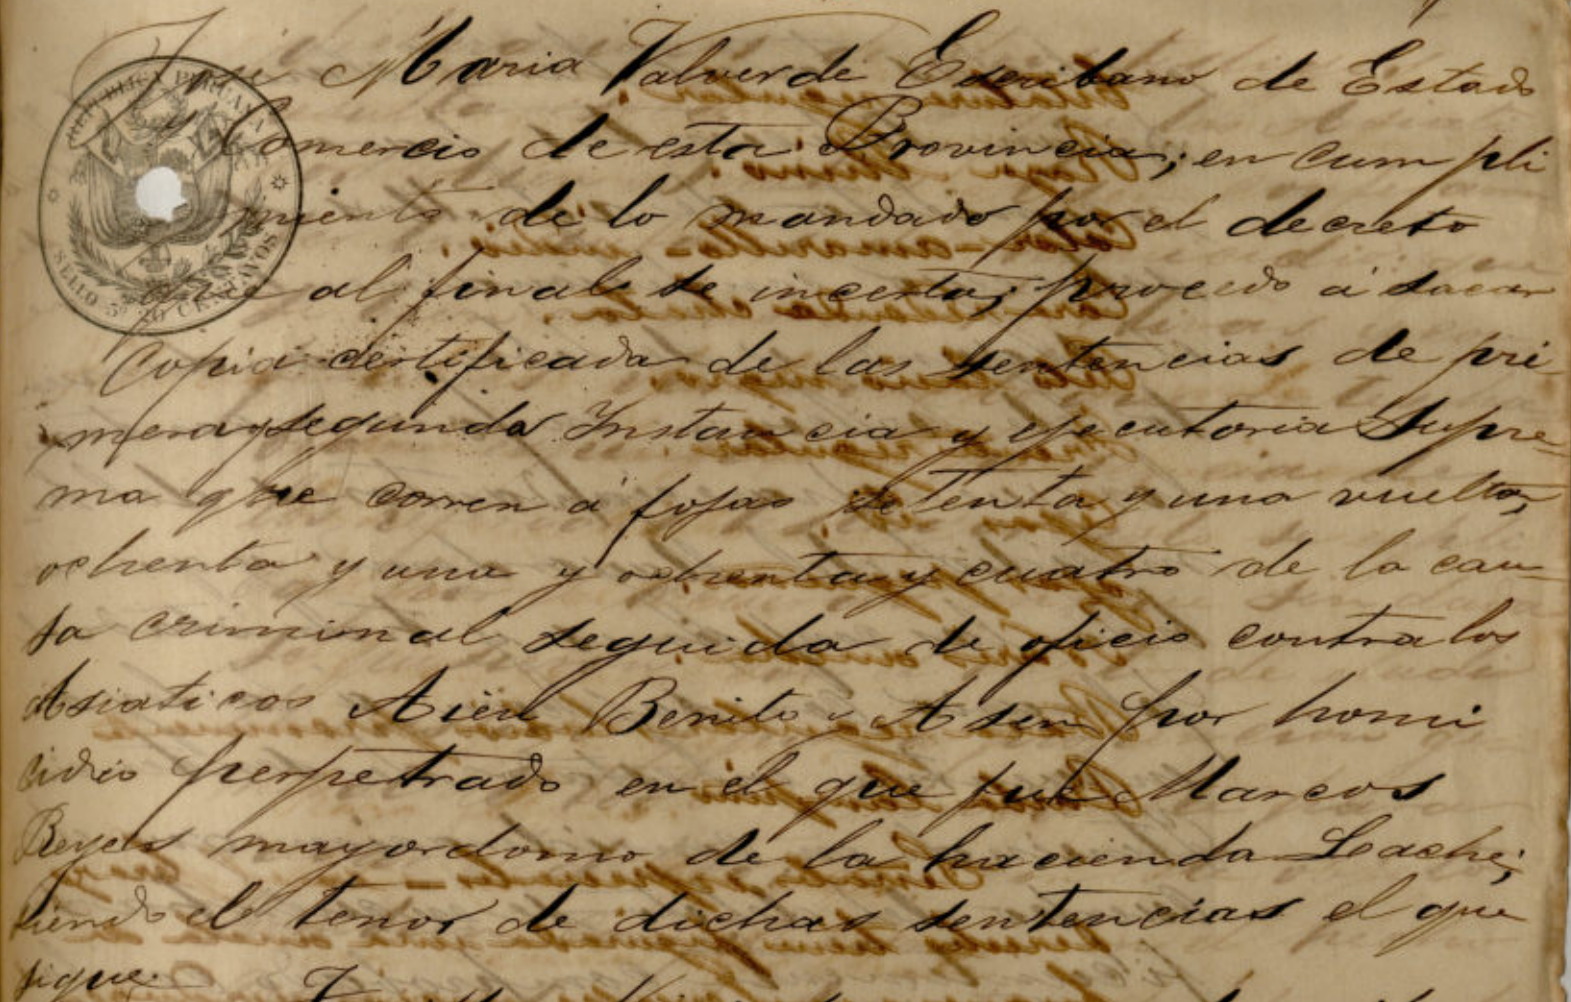 José Maria Valverde Escribano de Estado
y Comercio de esta Provincia; en cumpli
miento de lo mandado por el decreto
que al final se incerta; procedo á sacar
Copia certificada de las sentencias de pri
mera y segunda Instancia y ejecutoria Supre-
ma que corren á fojas setenta y una vuelta,
ochenta y una y ochenta y cuatro de la cau-
sa criminal seguida de oficio contra los
Asiaticos Aieu Benito y Asen por homi
cidio perpetrado en el que fue Marcos
Reyes mayordomo de la hacienda Loache;
siendo el tenor de dichas sentencias el que
sigue.
REPUBLICA PERUANA
SELLO 5º 20 CENTAVOS